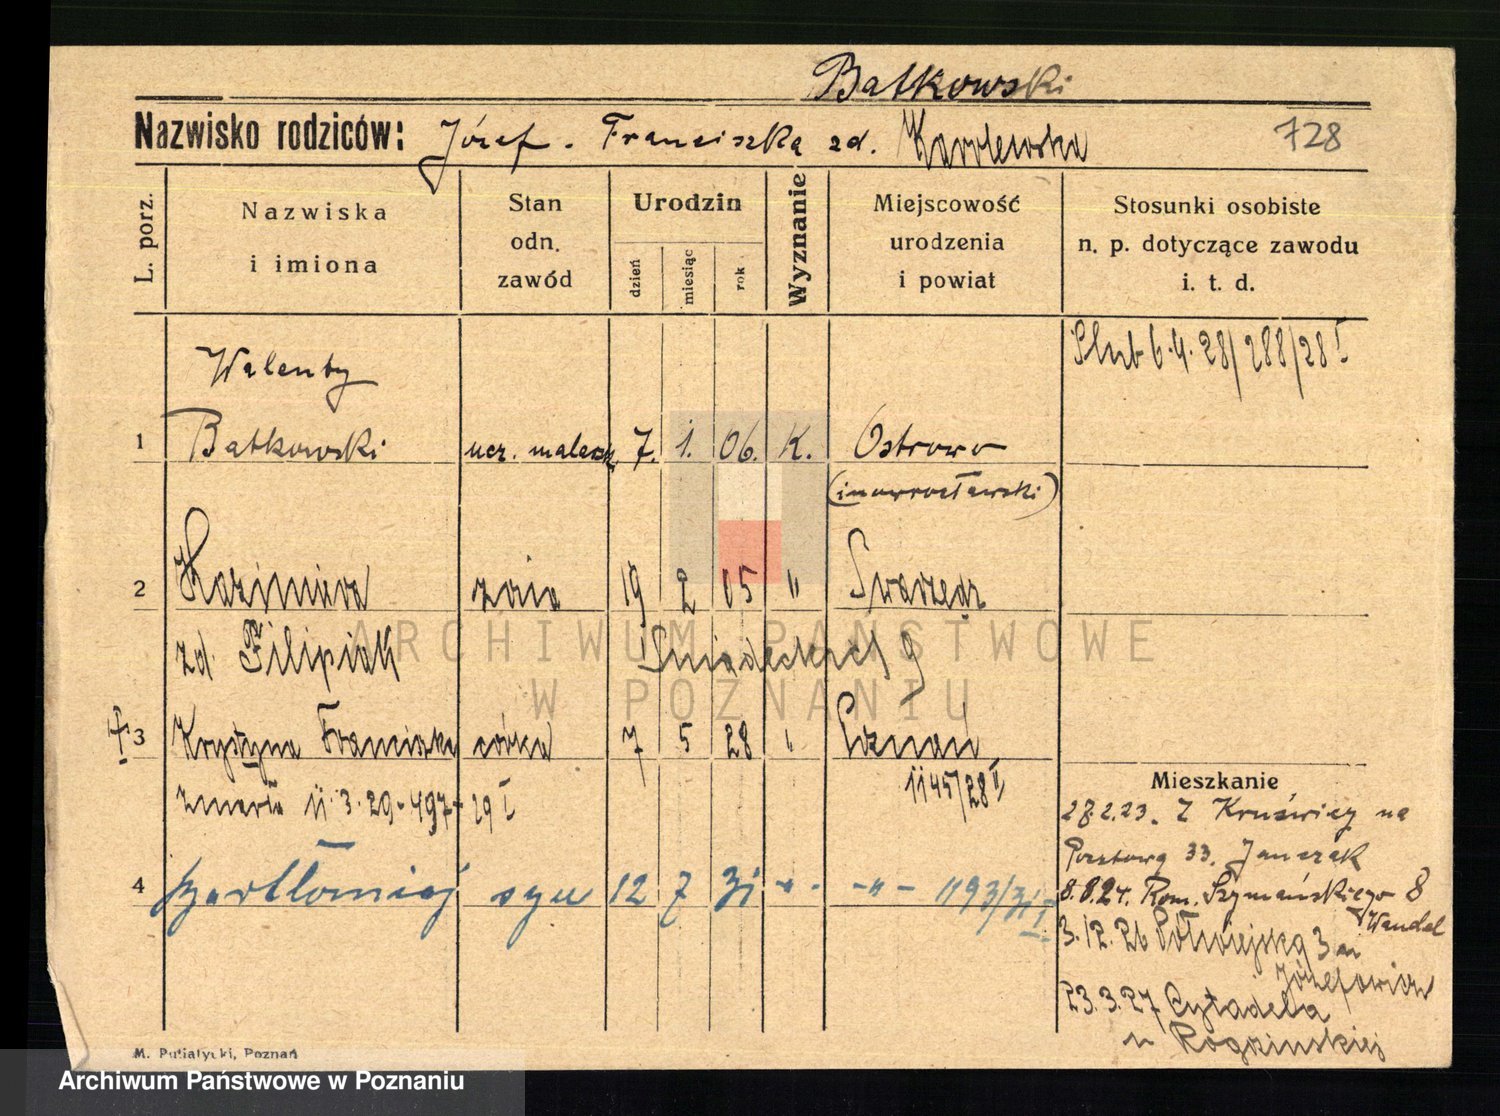 Batkowski
Nazwisko rodziców: Józef - Franciszka zd. Karolewska 728
L. porz.
Nazwiska i imiona
Stan odn. zawód
Urodzin
dzień miesiąc rok
Wyznanie
Miejscowość urodzenia i powiat
Stosunki osobiste n. p. dotyczące zawodu i. t. d.
Ślub 6.4.28/288/28 I
Walenty
1 Batkowski ucz. malarsk. 7. 1. 06. K. Ostrowo
(inowrocławski)
2 Kazimiera żona 19 2 05 " Swarzędz
zd. Filipiak Śniadeckich 9
3 Krystyna Franciszka córka 7 5 28 " Poznań
1145/28 I
zmarła 11.3.29 - 497 - 29 I
4 Bartłomiej syn 12 7 31 - " - - " - 1193/31 I
Mieszkanie
27.2.23. Z Kruświcy na
Pocztową 33. Janczak
8.8.24. Rom. Szymańskiego 8
Wandel
3.12.26 Półwiejska 3 m
Józefowicz
23.3.27 Cytadela
u Rogozinskiej
M. Putiatycki, Poznań
ARCHIWUM PAŃSTWOWE
W POZNANIU
Archiwum Państwowe w Poznaniu